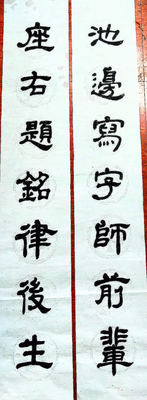 池邊寫字師前輩
座右題銘律後生